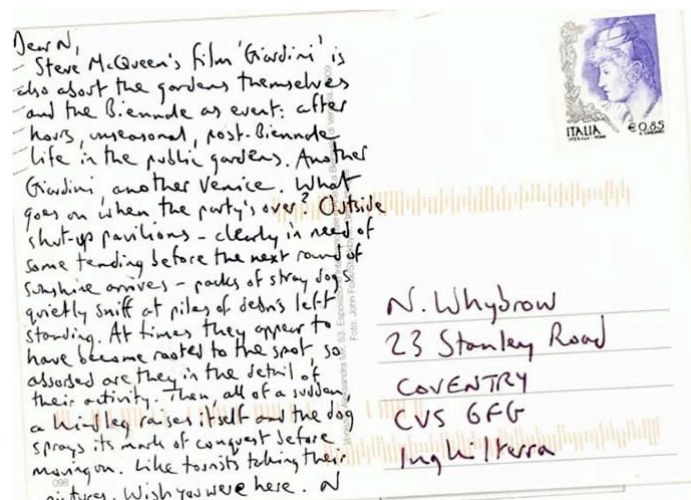 Dear N,
Steve McQueen's film 'Giardini' is
also about the gardens themselves
and the Biennale as event: after
hours, unseasonal, post-Biennale
life in the public gardens. Another
Giardini, another Venice. What
goes on when the party's over? Outside
shut-up pavilions – clearly in need of
some tending before the next round of
sunshine arrives – packs of stray dogs
quietly sniff at piles of debris left
standing. At times they appear to
have become rooted to the spot, so
absorbed are they in the detail of
their activity. Then, all of a sudden,
a hindleg raises itself and the dog
sprays its mark of conquest before
moving on. Like tourists taking their
pictures. Wish you were here. N
098
ITALIA
€0,85
N. Whybrow
23 Stanley Road
COVENTRY
CV5 6FG
Inghilterra